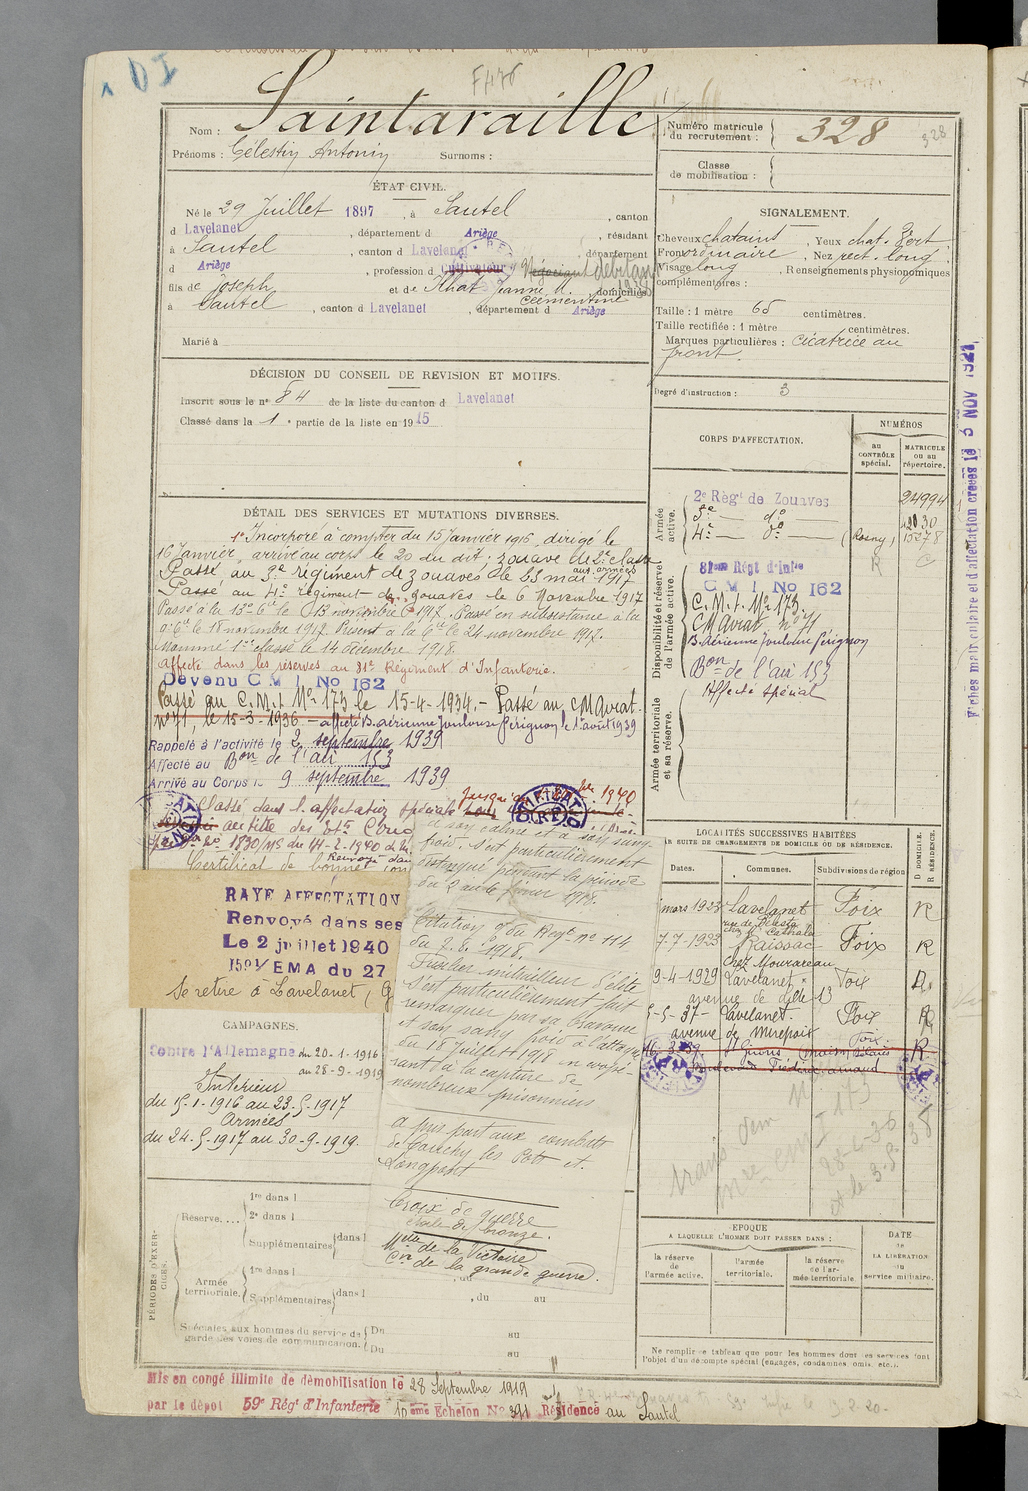 1 DI
F476
Nom : Saintaraille
Prénoms : Célestin Antonin Surnoms :
Numéro matricule du recrutement : 328
328
Classe de mobilisation :
ÉTAT CIVIL.
Né le 29 Juillet 1897, à Sautel, canton
d Lavelanet, département d Ariège, résidant
à Sautel, canton d Lavelanet, département
d Ariège, profession d Cultivateur Négociant débitant
1938
fils de Joseph et de Abat Jeanne M. Clémentine domiciliés
à Sautel, canton d Lavelanet, département d Ariège
Marié à
SIGNALEMENT.
Cheveux chatains, Yeux chat. F
Front ordinaire, Nez rect. long
Visage long, Renseignements physionomiques
complémentaires :
Taille : 1 mètre 65 centimètres.
Taille rectifiée : 1 mètre centimètres.
Marques particulières : cicatrice au
front.
Degré d'instruction : 3
DÉCISION DU CONSEIL DE REVISION ET MOTIFS.
Inscrit sous le n° 84 de la liste du canton d Lavelanet
Classé dans la 1e partie de la liste en 1915
CORPS D'AFFECTATION.
NUMÉROS
au CONTRÔLE spécial.
MATRICULE ou au répertoire.
Armée active.
2e Régt de Zouaves 24994
3e — do —
4e — do — (Rosny) 15278
R C
Disponibilité et réserve de l'armée active.
81me Régt d'Infie
C M I No 162
C. M. I. No 173.
CM Aviat. n° 71
B. Aérienne Toulouse Pérignon
Bon de l'air 153
Affecté spécial
Armée territoriale et sa réserve.
Fiches matriculaire et d'affectation créées le 5 NOV 1921
DÉTAIL DES SERVICES ET MUTATIONS DIVERSES.
1° Incorporé à compter du 15 janvier 1916, dirigé le
16 Janvier arrivé au corps le 20 du dit, zouave de 2e classe
Passé au 3e régiment de zouaves aux armées le 23 mai 1917
Passé au 4e régiment de zouaves le 6 novembre 1917
Passé à la 13e Cie le 13 novembre 1917. Passé en subsistance à la
Cie le 18 novembre 1917. Présent à la 6e Cie le 24 novembre 1917.
Nommé 1ere classe le 14 décembre 1918.
Affecté dans les réserves au 81e Régiment d'Infanterie.
Devenu C M I No 162
Passé au C.M.I No 173 le 15-4-1934. - Passé au CM Aviat.
n° 71, le 15-3-1936 - affecté B. aérienne Toulouse Pérignon le 1er août 1939
Rappelé à l'activité le 2 septembre 1939
Affecté au Bon de l'air 153
Arrivé au Corps le 9 septembre 1939
Classé dans l'affectation spéciale
au titre des Ets
1830/MS du 14-2-1940
Certificat de bonne
RAYE AFFECTATION
Renvoyé dans ses
Le 2 juillet 1940
1591/EMA du 27
Se retire à Lavelanet,
à son calme et à son sang-
froid. S'est particulièrement
distingué pendant la période
du 2 au 6 février 1918.
Citation O. du Régt n° 114
du 2.8.1918.
Fusilier mitrailleur d'élite
s'est particulièrement fait
remarquer par sa bravoure
et son sang froid à l'attaque
du 18 Juillet 1918 en coopé-
rant à la capture de
nombreux prisonniers
A pris part aux combats
de Longpont
Croix de guerre
étoile de bronze.
Mlle de la Victoire
Cve de la grande guerre.
CAMPAGNES.
Contre l'Allemagne du 20-1-1916
au 28-9-1919
Intérieur
du 15-1-1916 au 23-5-1917
Armées
du 24-5-1917 au 30-9-1919.
LOCALITÉS SUCCESSIVES HABITÉES
PAR SUITE DE CHANGEMENTS DE DOMICILE OU DE RÉSIDENCE.
Dates. Communes. Subdivisions de région D DOMICILE. R RÉSIDENCE.
mars 1923 Lavelanet Foix R
7-7-1923 Raissac Foix R
chez Mourareau
9-4-1929 Lavelanet Foix D.
avenue de 13
5-5-37- Lavelanet. Foix R
avenue de Mirepoix
Foix R
trans dem
PÉRIODES D'EXERCICES.
Réserve.... 1re dans l
2e dans l
Supplémentaires dans l
Armée territoriale. 1re dans l
Supplémentaires dans l , du au
Spéciales aux hommes du service de garde des voies de communication. Du au
Du au
EPOQUE
A LAQUELLE L'HOMME DOIT PASSER DANS :
la réserve de l'armée active.
l'armée territoriale.
la réserve de l'armée territoriale
DATE de LA LIBÉRATION du service militaire.
Ne remplir ce tableau que pour les hommes dont les services font
l'objet d'un décompte spécial (engagés, condamnés, omis, etc.).
Mis en congé illimité de démobilisation le 28 Septembre 1919
par le dépôt 59e Régt d'Infanterie 10ème Echelon No 391 Résidence au Sautel